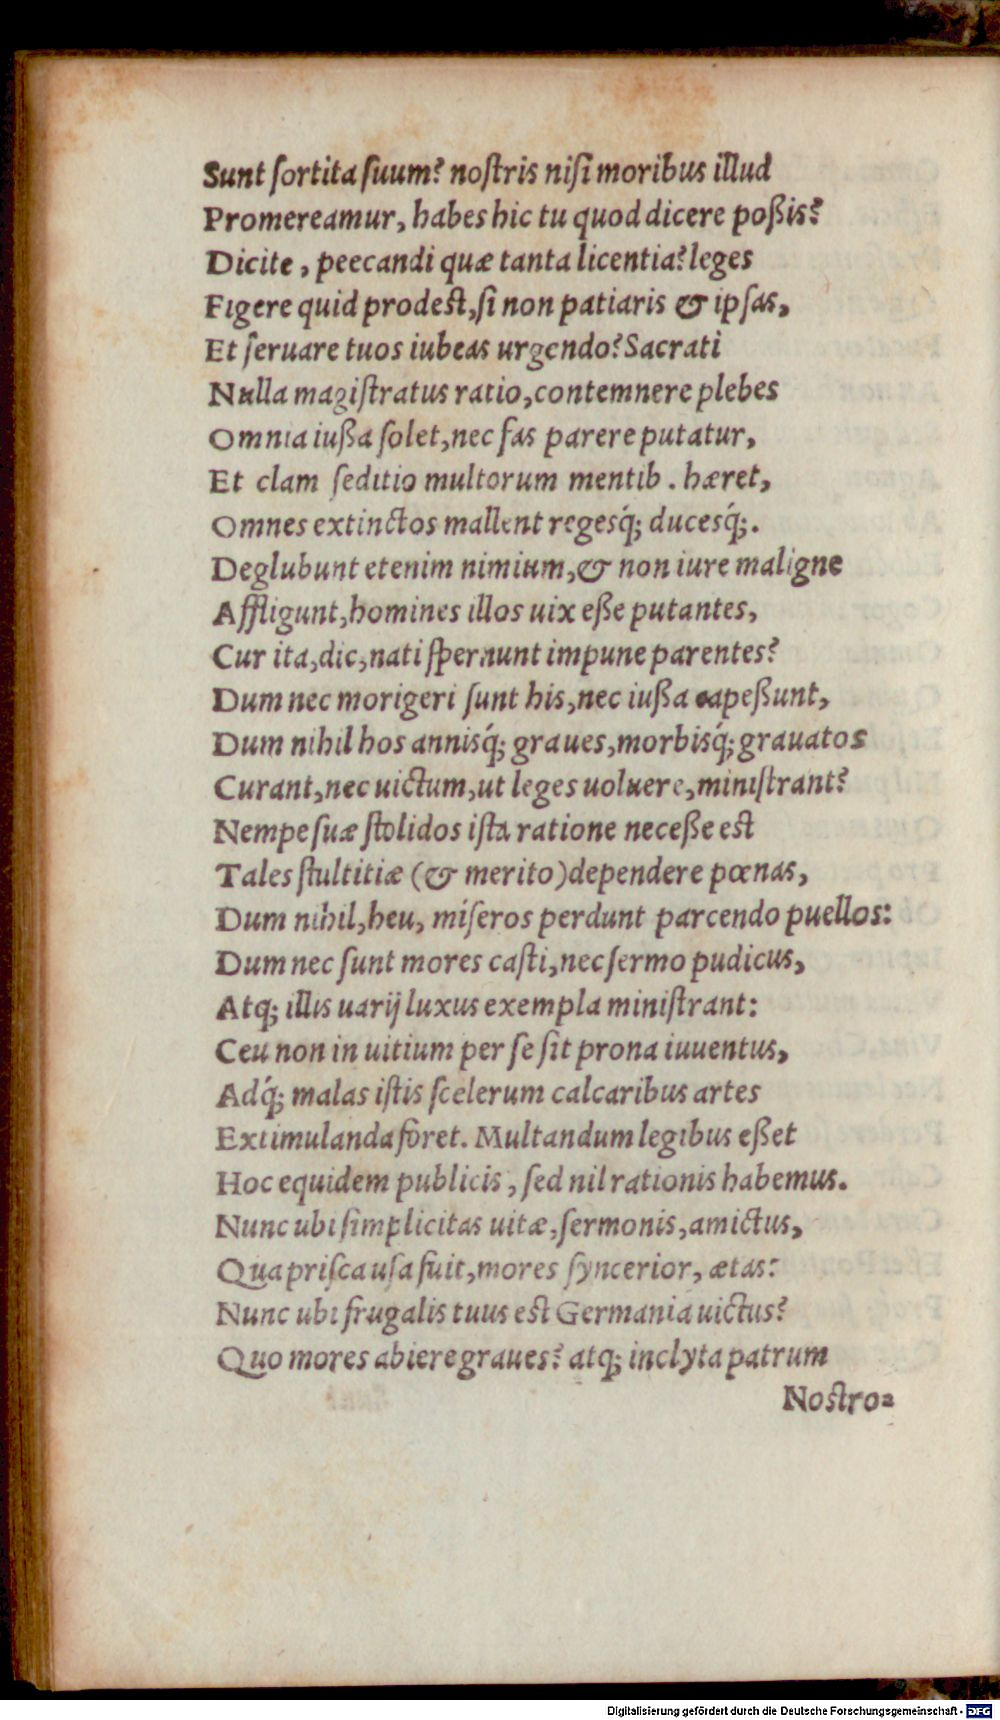 Sunt ſortita ſuum? noſtris niſi moribus illud
Promereamur, habes hic tu quod dicere poßis?
Dicite, peecandi quæ tanta licentia? leges
Figere quid prodeſt, ſi non patiaris & ipſas,
Et ſeruare tuos iubeas urgendo? Sacrati
Nulla magiſtratus ratio, contemnere plebes
Omnia iußa ſolet, nec fas parere putatur,
Et clam ſeditio multorum mentib. hæret,
Omnes extinctos mallent regesq́; ducesq́;.
Deglubunt etenim nimium, & non iure maligne
Affligunt, homines illos uix eße putantes,
Cur ita, dic, nati ſpernunt impune parentes?
Dum nec morigeri ſunt his, nec iußa capeßunt,
Dum nihil hos annisq́; graues, morbisq́; grauatos
Curant, nec uictum, ut leges uoluere, miniſtrant?
Nempe ſuæ ſtolidos iſta ratione neceße eſt
Tales ſtultitiæ (& merito) dependere pœnas,
Dum nihil, heu, miſeros perdunt parcendo puellos:
Dum nec ſunt mores caſti, nec ſermo pudicus,
Atq; illis uarij luxus exempla miniſtrant:
Ceu non in uitium per ſe ſit prona iuuentus,
Adq́; malas iſtis ſcelerum calcaribus artes
Extimulanda foret. Multandum legibus eßet
Hoc equidem publicis, ſed nil rationis habemus.
Nunc ubi ſimplicitas uitæ, ſermonis, amictus,
Qua priſca uſa fuit, mores ſyncerior, ætas:
Nunc ubi frugalis tuus eſt Germania uictus?
Quo mores abiere graues? atq; inclyta patrum
Noſtro⸗
Digitalisierung gefördert durch die Deutsche Forschungsgemeinschaft - DFG